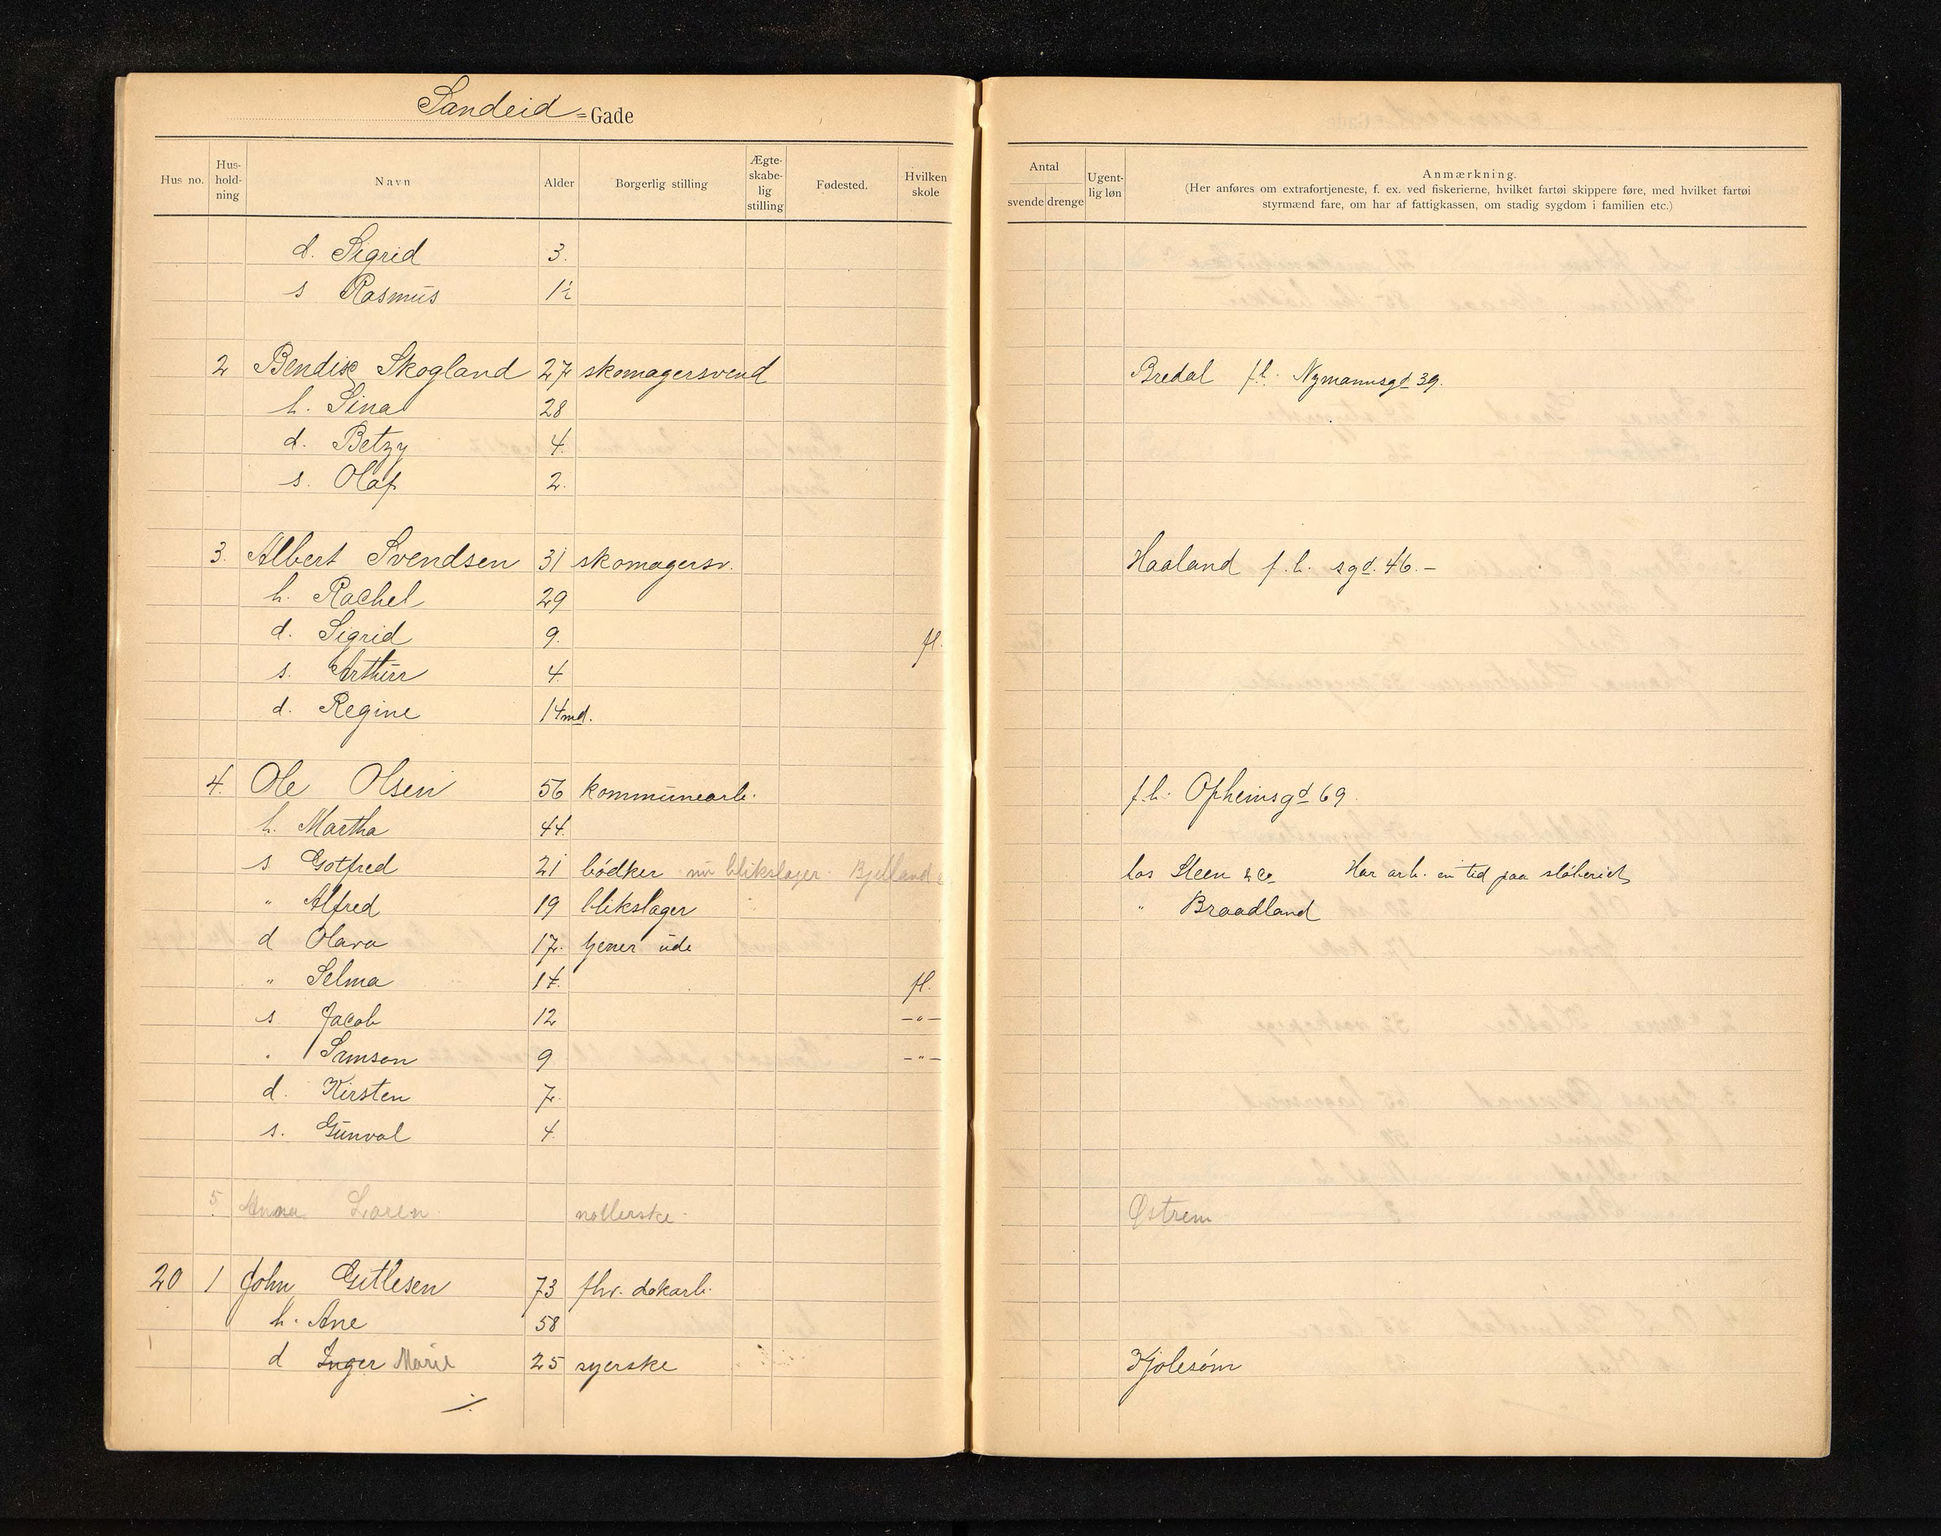 Sandeid - Gade
Hus no. Hus-hold-ning Navn Alder Borgerlig stilling Ægte-skabe-lig stilling Fødested. Hvilken skole Antal svende drenge Ugent-lig løn Anmærkning.
(Her anføres om extrafortjeneste, f. ex. ved fiskerierne, hvilket fartøi skippere føre, med hvilket fartøi
styrmænd fare, om har af fattigkassen, om stadig sygdom i familien etc.)
d. Sigrid 3.
s Rasmus 1½
2 Bendix Skogland 27 skomagersvend Bredal f.h. Nymannsgd 39.
h. Sina 28
d. Betzy 4.
s. Olaf 2.
3. Albert Svendsen 31 skomagersv. Haaland f.h. sgd. 46.-
h. Rachel 29
d. Sigrid 9. fl.
s. Arthur 4
d. Regine 14 md.
4. Ole Olsen 56 kommunearb. f.h. Opheimsgd 69.
h. Martha 44.
s Gotfred 21 bødker nu blikslager Bjelland hos Steen & Co Har arb. en tid paa støberiet
" Alfred 19 blikslager " Braadland
d Olava 17. tjener ude
" Selma 14. fl.
s Jacob 12 -"-
" Samson 9 -"-
d. Kirsten 7.
s. Gunval 4.
5. Anna Loren nøllerske Østrem
20 1 John Gitlesen 73 fhv. dokarb.
h. Ane 58
d Inger Marie 25 syerske Kjølesøm